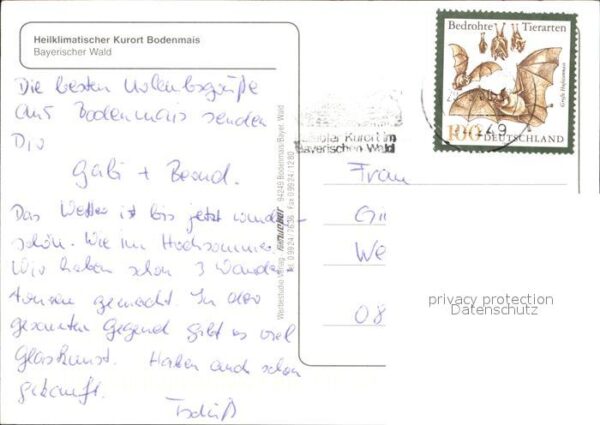 Heilklimatischer Kurort Bodenmais
Bayerischer Wald
Die besten Urlaubsgrüße
aus Bodenmais senden
Dir
Gabi + Bernd.
Das Wetter ist bis jetzt wunder-
schön. Wie im Hochsommer.
Wir haben schon 3 Wander-
touren gemacht. In der
gesamten Gegend gibt es viel
Glaskunst. Haben auch schon
gekauft.
Tschüß
Werbestudio Verlag 94249 Bodenmais/Bayer. Wald
Tel. 09924/7636 Fax 09924/1280
Bedrohte Tierarten
Große Hufeisennase
100 DEUTSCHLAND
249
Kurort im
Bayerischen Wald
Frau
We
08
privacy protection
Datenschutz